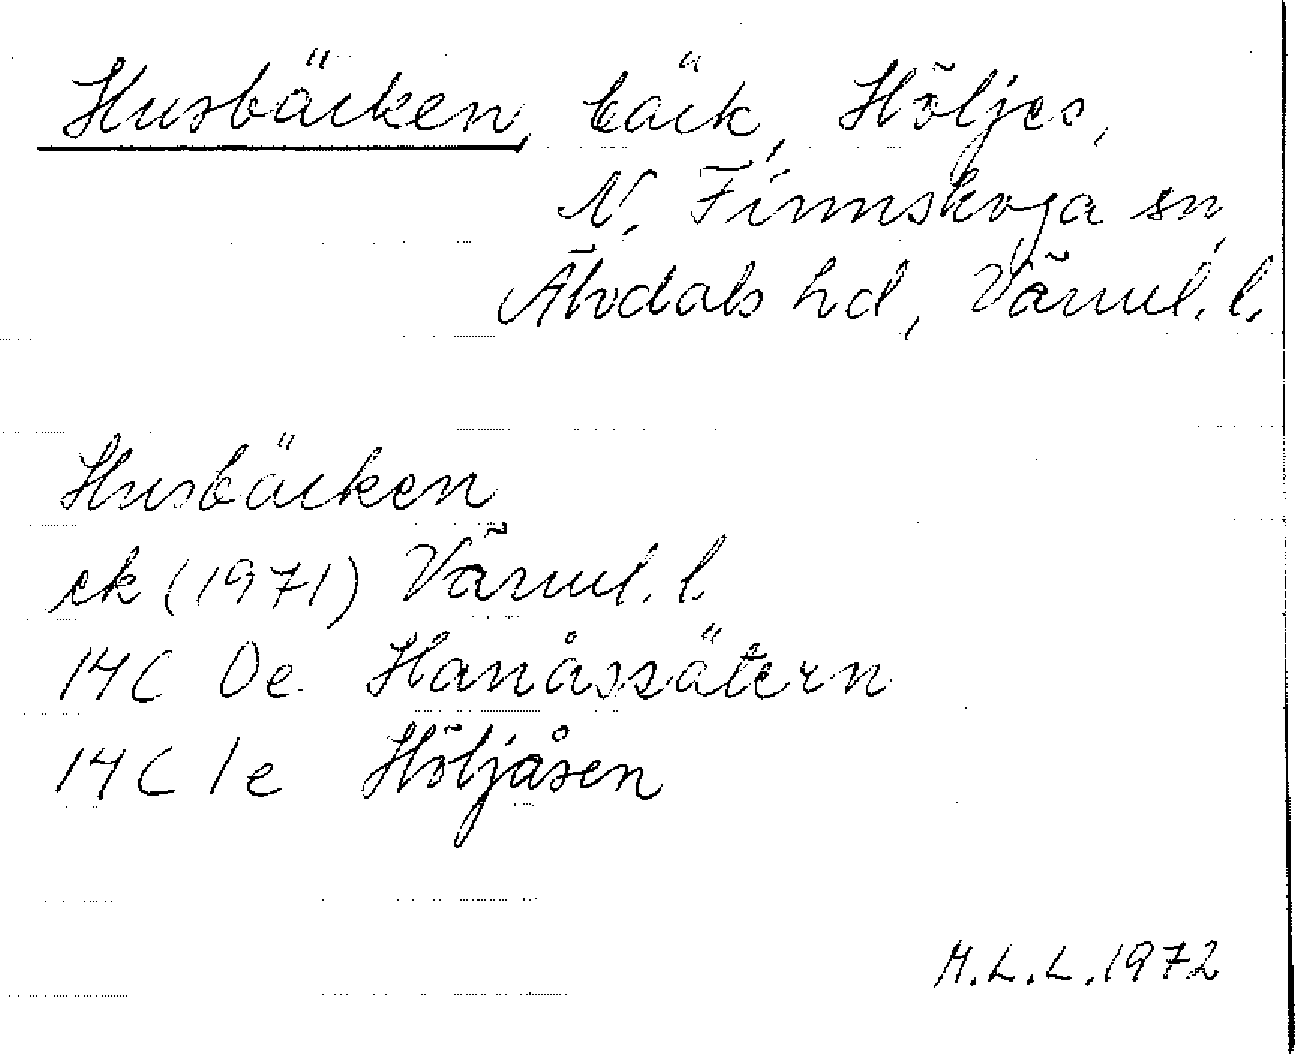 Husbäcken, bäck, Höljes,
N. Finnskoga sn,
Älvdals hd, Värml. l.
Husbäcken
ek (1971) Värml. l.
14C 0e Hanåssätern
14C 1e Höljåsen
M.L.L. 1972